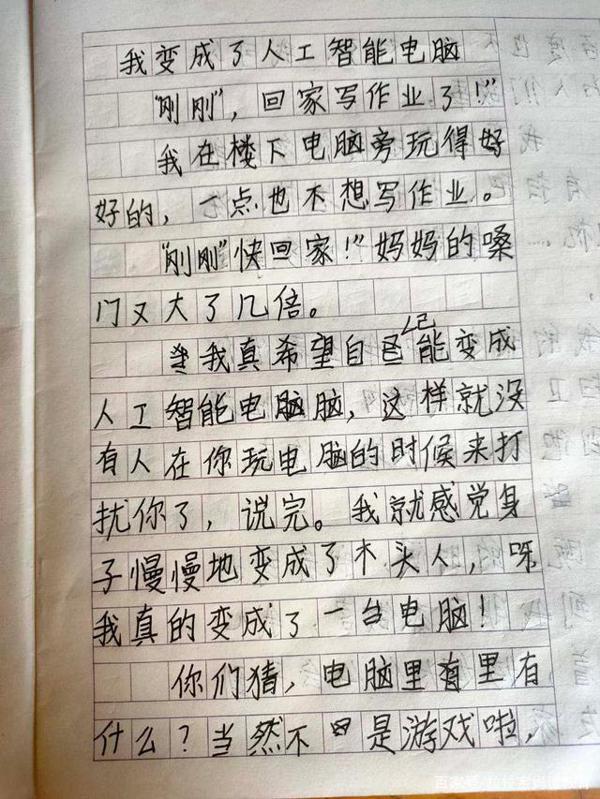 我变成了人工智能电脑
“刚刚”，回家写作业了！”
我在楼下电脑旁玩得好
好的，一点也不想写作业。
“刚刚”快回家！”妈妈的嗓
门又大了几倍。
我真希望自己能变成
人工智能电脑脑，这样就没
有人在你玩电脑的时候来打
扰你了，说完。我就感觉身
子慢慢地变成了木头人，呀
我真的变成了一台电脑！
你们猜，电脑里有里有
什么？当然不是游戏啦，